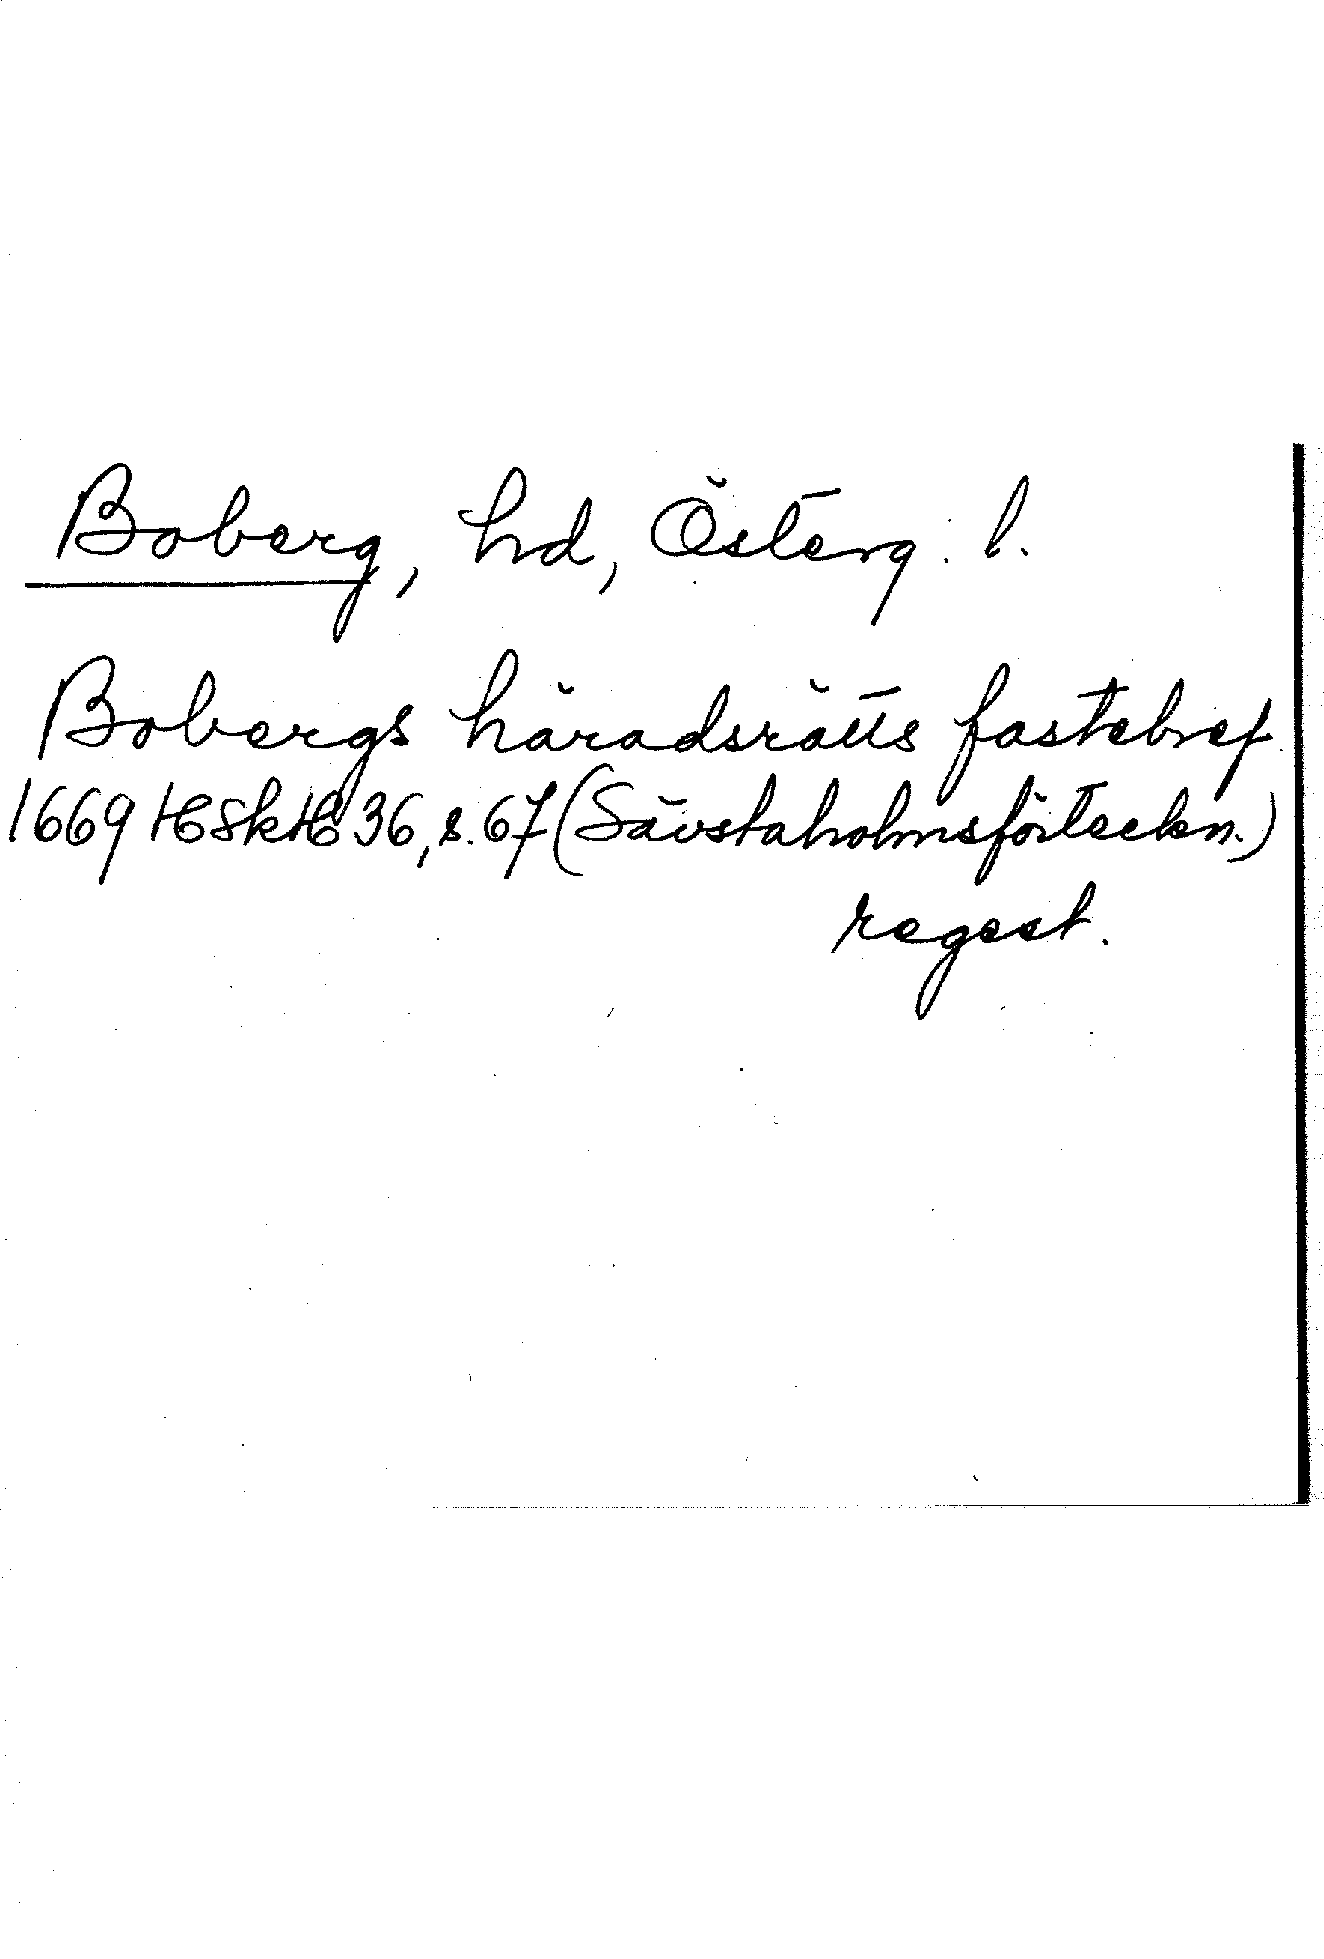 Boberg, hd, Österg. l.
Bobergs häradsrätts fastebref
1669 HSkH 36, s. 67 (Sävstaholmsförteckn.)
regest.